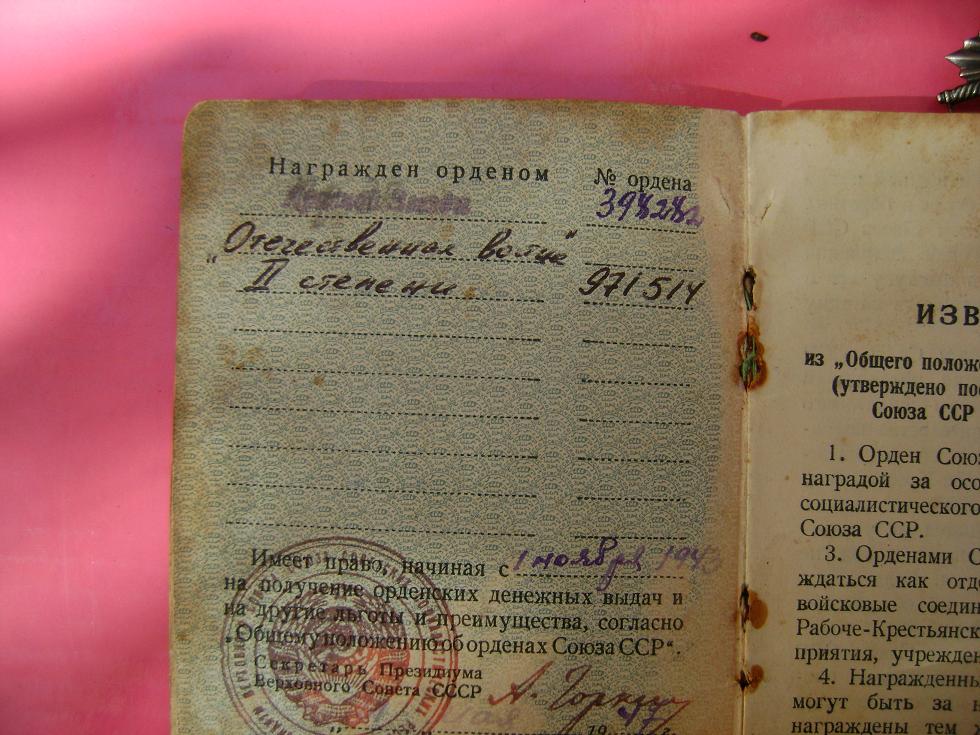 Награжден орденом
№ ордена
Красной Звезды
398282
„Отечественная война"
II степени
971514
Имеет право, начиная с 1 ноября 1943
на получение орденских денежных выдач и
на другие льготы и преимущества, согласно
„Общему положению об орденах Союза ССР“.
Секретарь Президиума
Верховного Совета СССР
А. Горкин
19 47 г.
ИЗВ
из „Общего полож
(утверждено по
Союза ССР
1. Орден Сою
наградой за осо
социалистического
Союза ССР.
3. Орденами С
ждаться как отд
войсковые соедин
Рабоче-Крестьянск
приятия, учрежден
4. Награжденны
могут быть за н
награждены тем